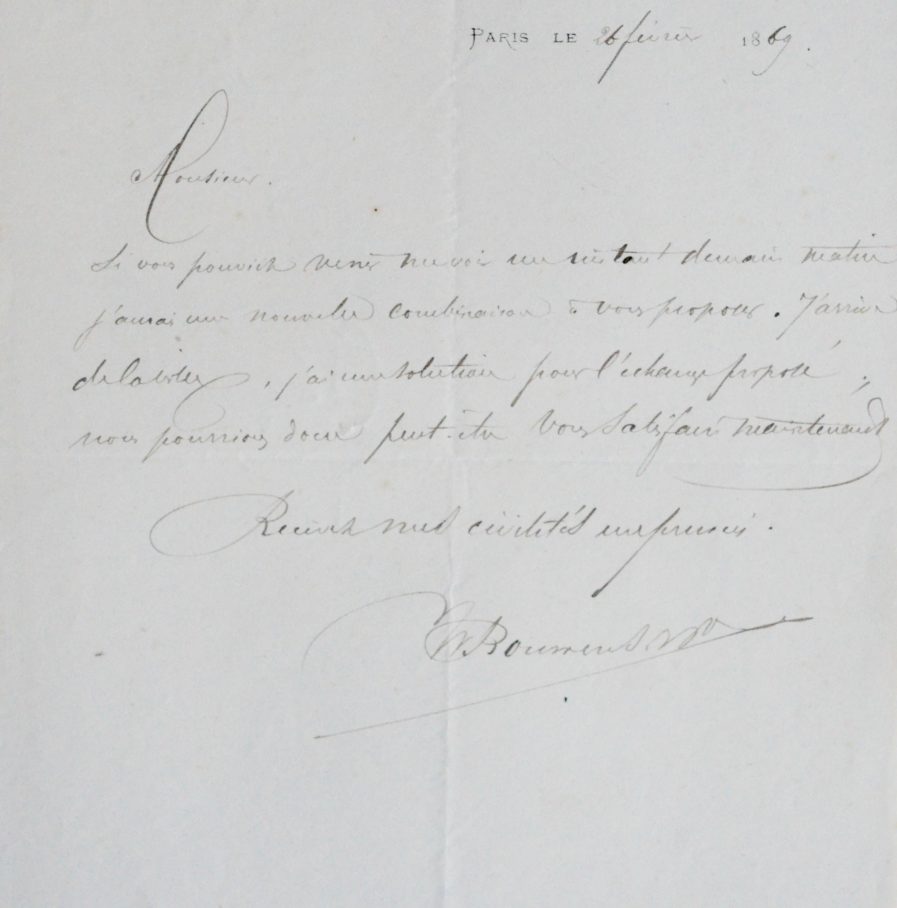 PARIS LE 26 février 1869.
Monsieur.
Si vous pouviez venir me voir un instant demain matin
j'aurai une nouvelle combinaison à vous proposer. J'arrive
, j'ai une solution pour l'échange proposé
nous pourrions donc peut-être vous satisfaire maintenant
Recevez mes civilités empressées.